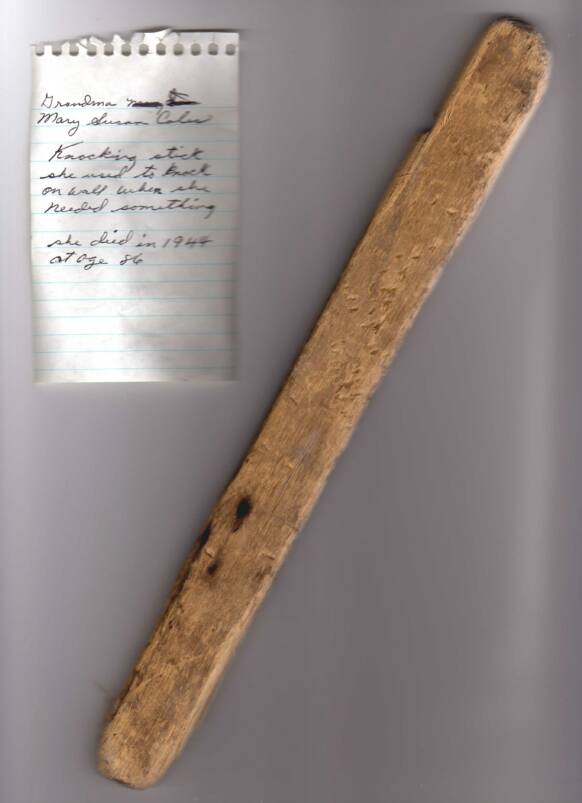 Grandma
Mary Susan Coles
Knocking stick
she used to knock
on wall when she
needed something
she died in 1944
at age 86